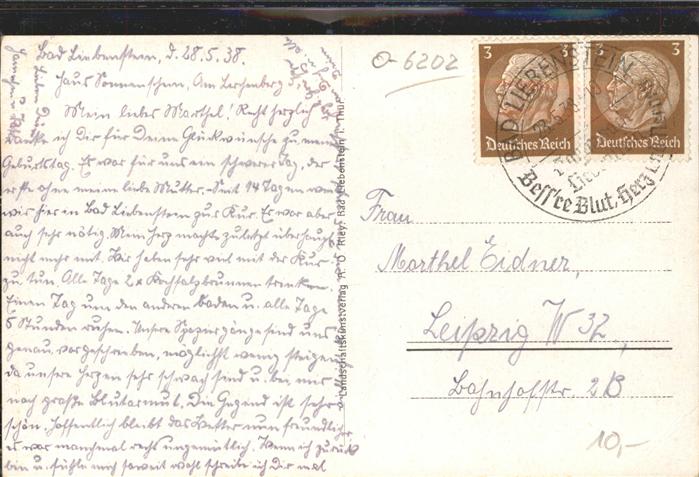 Bad Liebenstein, d. 28.5.38.
Haus Sonnenschein, Am Lerchenberg
Mein liebes Marthel! Recht herzlich
danke ich Dir für Deine Glückwünsche zu mein
Geburtstag. Es war für uns ein schwerer Tag, der
erste ohne meine liebe Mutter. Seit 14 Tagen
wir hier in Bad Liebenstein zur Kur. Es war aber
auch sehr nötig. Mein Herz machte zuletzt überhaupt
nicht mehr mit. Wir haben sehr viel mit der Kur
zu tun. Alle Tage 2 x Kochsalzbrunnen trinken.
Einen Tag um den anderen baden u. alle Tage
5 Stunden ruhen. Unsere Spaziergänge sind uns
genau vorgeschrieben, möglichst wenig steigen,
da unsere Herzen sehr schwach sind u. bei mir
noch große Blutarmut. Die Gegend ist sehr
schön. Hoffentlich bleibt das Wetter nun freundlich
es war manchmal recht ungemütlich. Wenn ich zurück
bin u. fühle mich soweit wohl schreibe ich Dir mal
Landschaftskunstverlag R. O. Bad Liebenstein i. Thür.
O-6202
3 3
Deutsches Reich Deutsches Reich
BAD LIEBENSTEIN
Bess're Blut, Herz
Frau
Marthel Eidner,
Leipzig W 32,
Bahnhofstr. 2B
10,-